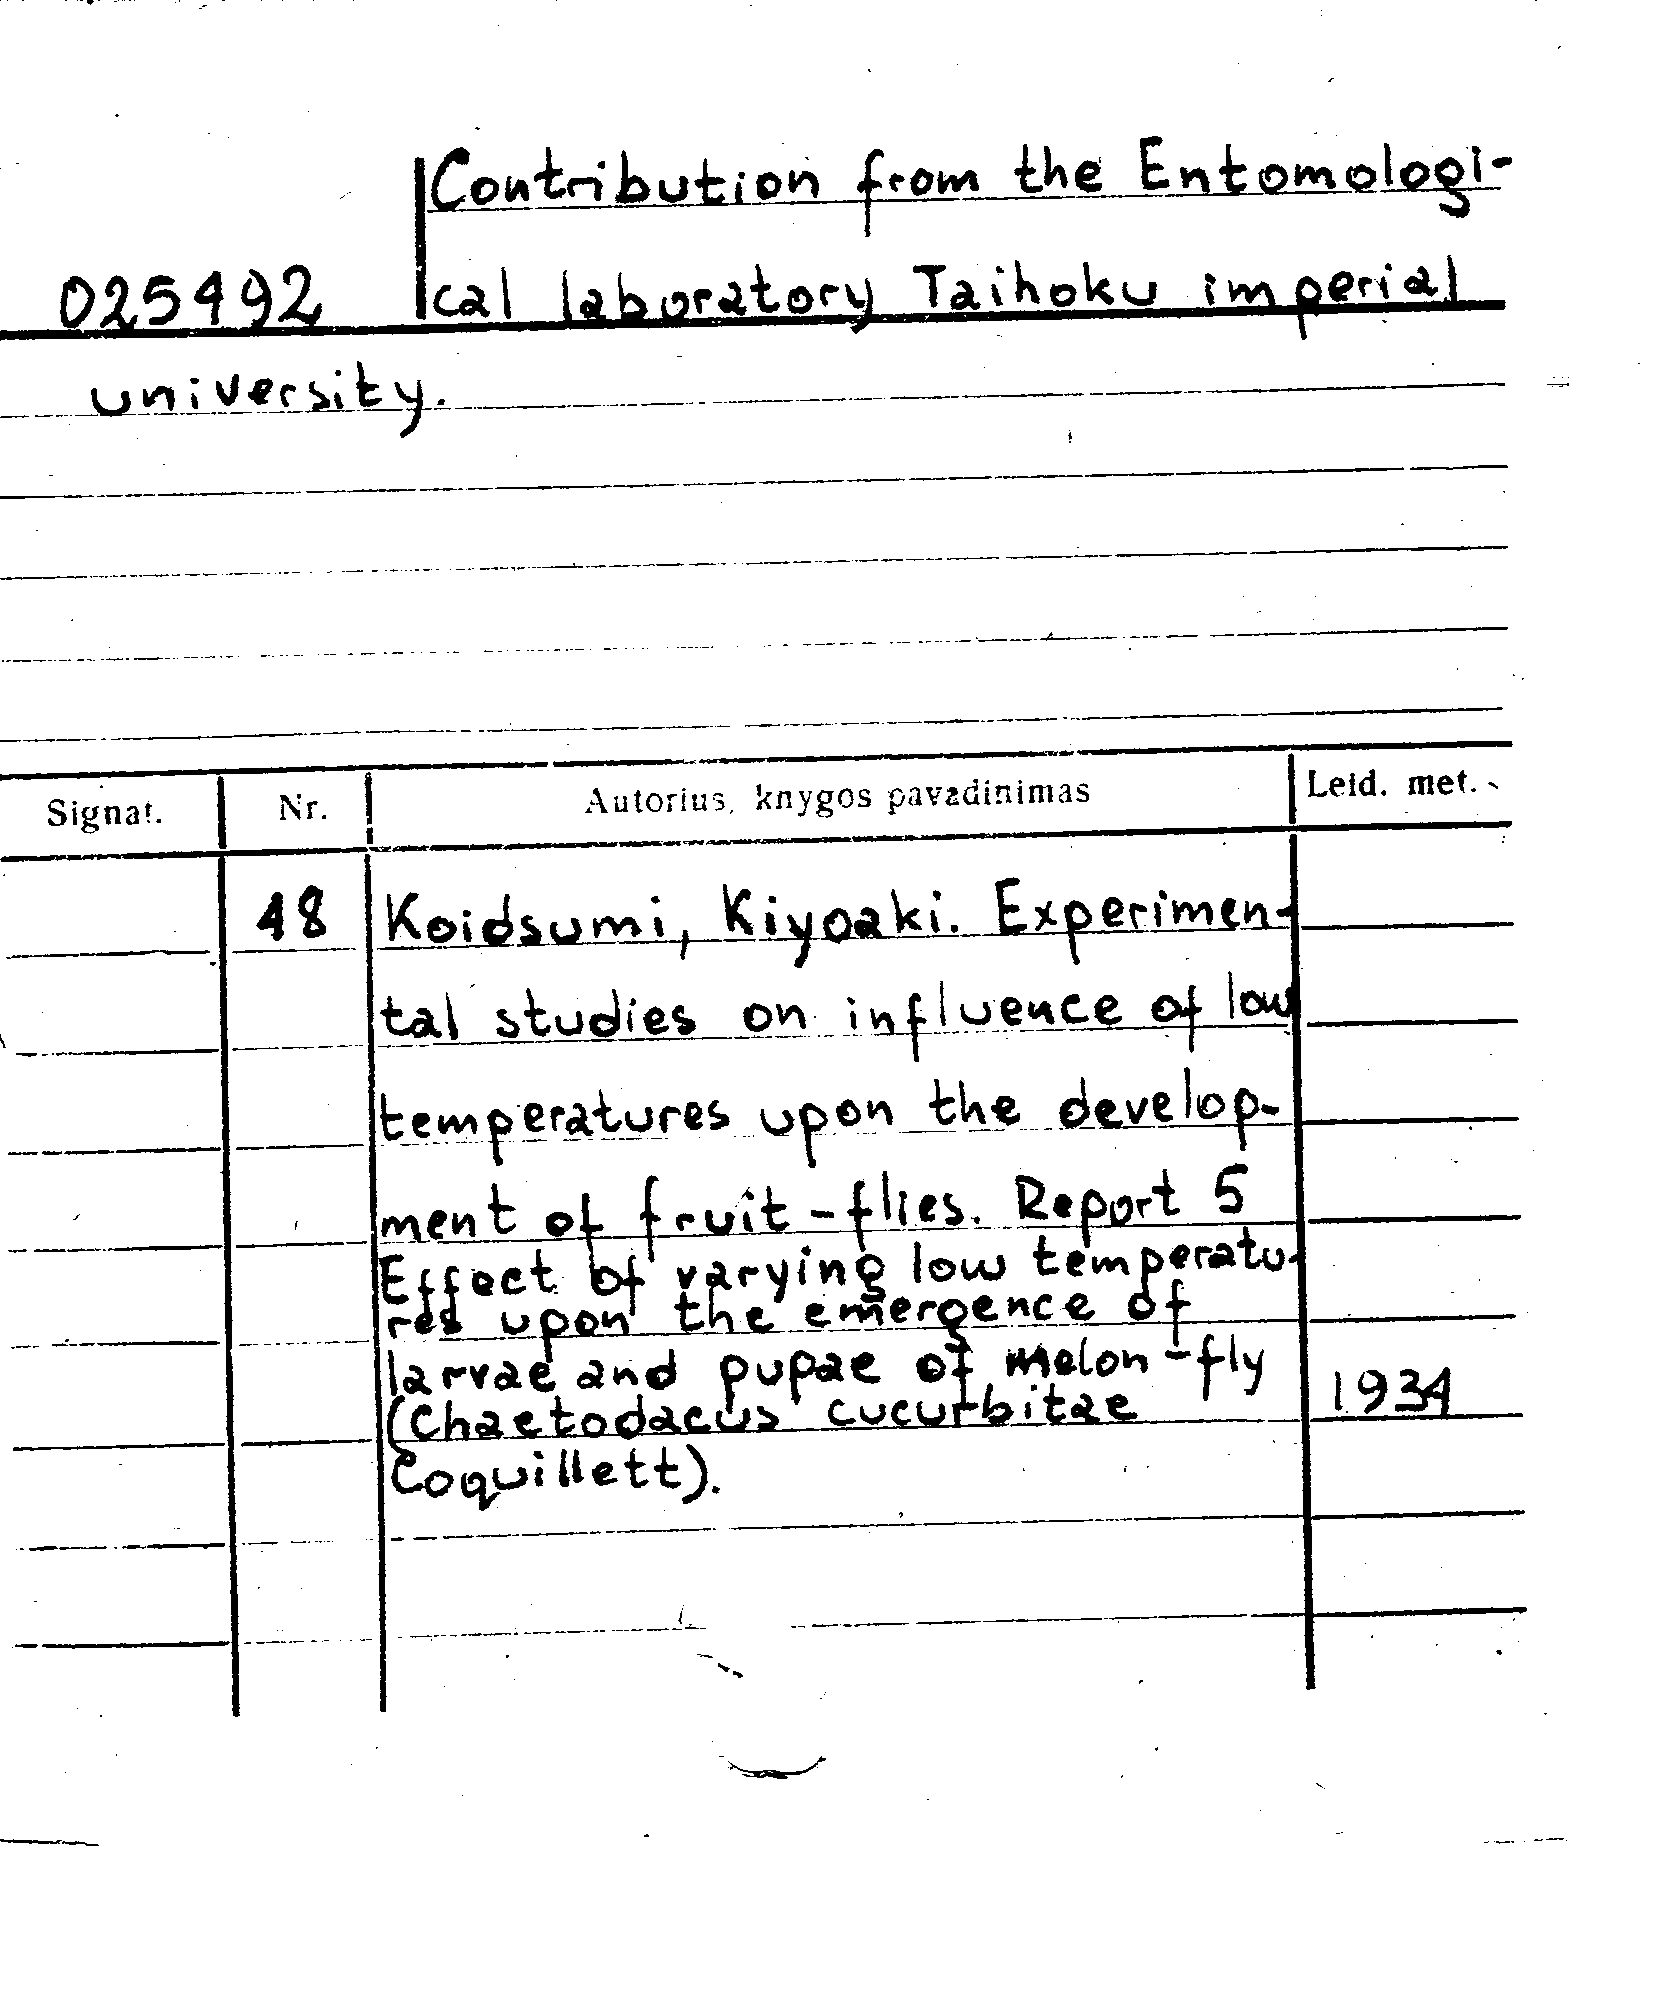 Contribution from the Entomologi-
025492 cal laboratory Taihoku imperial
university.
Signat. Nr. Autorius, knygos pavadinimas Leid. met.
48 Koidsumi, Kiyoaki. Experimen-
tal studies on influence of low
temperatures upon the develop-
ment of fruit-flies. Report 5
Effect of varying low temperatu-
res upon the emergence of
larvae and pupae of melon-fly
(Chaetodacus cucurbitae 1934
Coquillett).